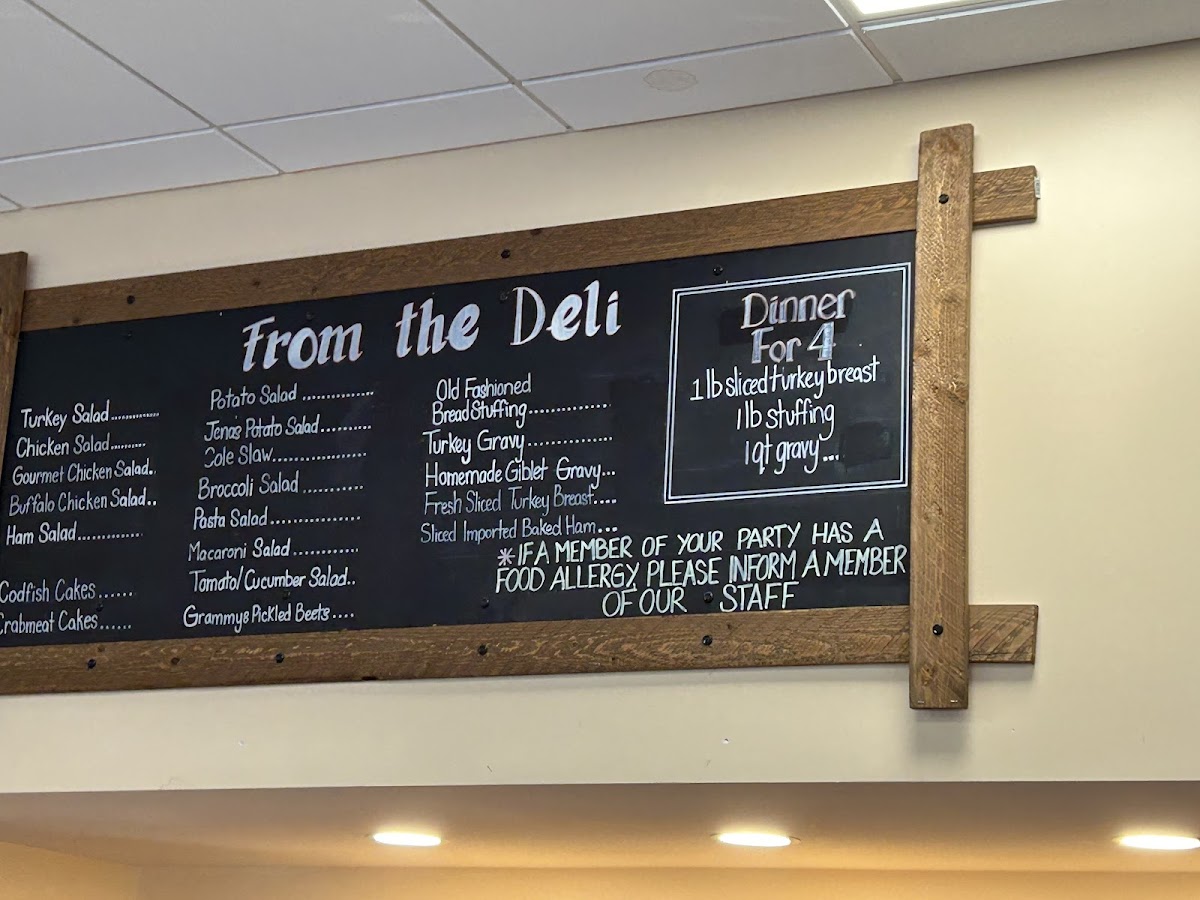 From the Deli
Turkey Salad............
Chicken Salad.........
Gourmet Chicken Salad..
Buffalo Chicken Salad..
Ham Salad.............
Codfish Cakes......
Crabmeat Cakes......
Potato Salad ..............
Jenas Potato Salad..........
Cole Slaw...................
Broccoli Salad ............
Pasta Salad................
Macaroni Salad ............
Tomato/Cucumber Salad..
Grammys Pickled Beets....
Old Fashioned
Bread Stuffing...............
Turkey Gravy...............
Homemade Giblet Gravy...
Fresh Sliced Turkey Breast....
Sliced Imported Baked Ham...
Dinner
For 4
1 lb sliced turkey breast
1 lb stuffing
1 qt gravy...
* IF A MEMBER OF YOUR PARTY HAS A
FOOD ALLERGY, PLEASE INFORM A MEMBER
OF OUR STAFF